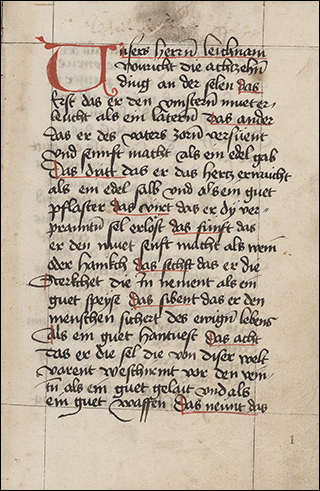 Unsers herrn leichnam
wuricht die achtzehn
ding an der selen das
erst das er den vinstern mueter
leucht als ein latern Das ander
das er des vaters zorn versüent
und sennft macht als ein edel gab
Das dritt das er das hertz ermacht
als ein edel salb und als ein guet
pflaster das virt das er dy ver
praunten sel erlöst das fünft das
er den muet senft macht als wein
oder hanich das sechst das er die
sterkchet die in nement als ein
guet speyse das sibent das er den
menschen sichert des ewigen lebens
als ein guet hantvest das acht
das er die sel die von diser welt
varent beschirmt vor den vein
tn als ein guet gelait und als
ein guet waffen das neunt das
1